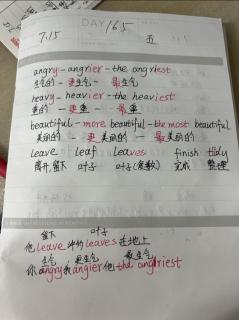 DAY 165
7.15 五
angry - angrier - the angriest
生气的 - 更生气 - 最生气
heavy - heavier - the heaviest
重的 - 更重 - 最重
beautiful - more beautiful - the most beautiful
美丽的 - 更美丽的 - 最美丽的
leave leaf leaves finish tidy
离开,留下 叶子 叶子(复数) 完成 整理
留下 叶子
他leave 的leaves在地上
生气 更生气 最生气
你angry我angier他the angriest